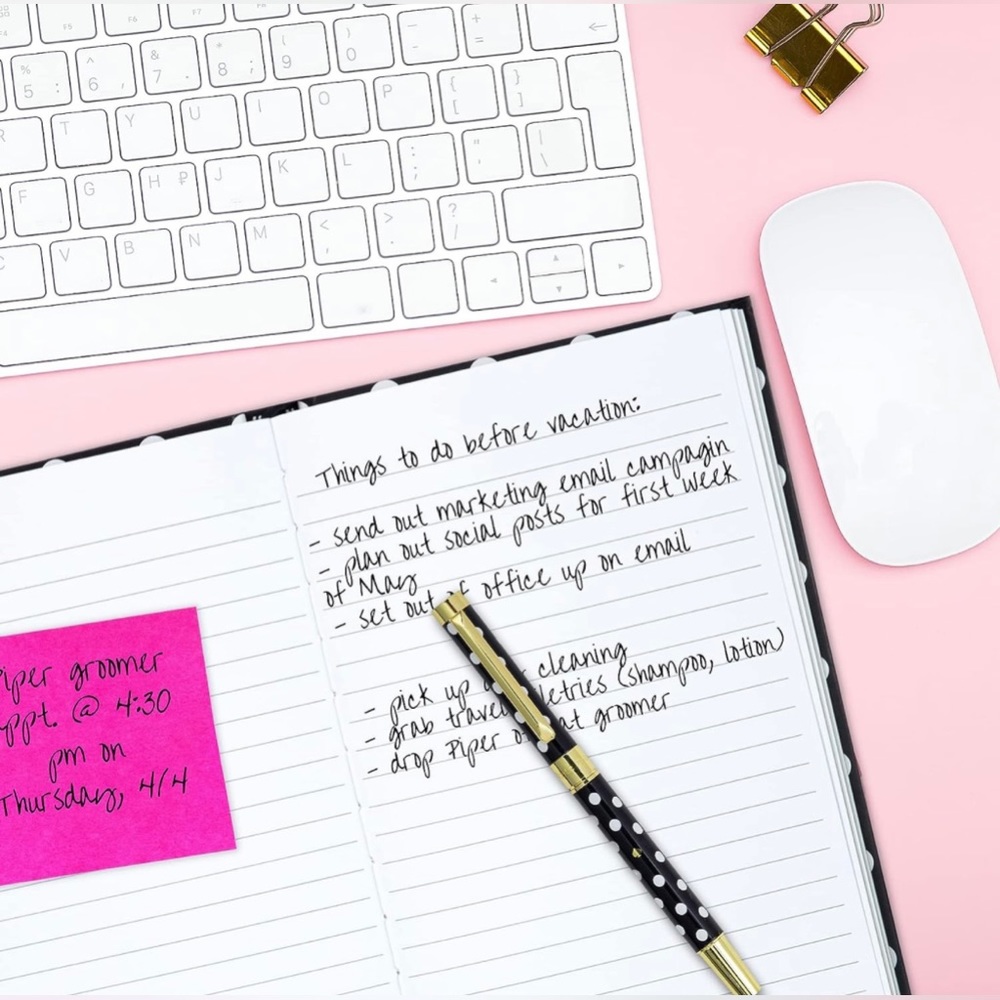 F5
F6
F7
F8
F9
F10
%
5 :
^
6 ,
&
7 .
*
8 ;
(
9
)
0
_
-
+
=
R
T
Y
U
I
O
P
{
[
}
]
F
G
H ₽
J
K
L
:
;
"
'
|
\
C
V
B
N
M
<
,
>
.
?
/
Things to do before vacation:
- send out marketing email campagin
- plan out social posts for first week
of May
- set out of office up on email
- pick up cleaning
- grab travel (shampoo, lotion)
- drop Piper at groomer
Piper groomer
appt. @ 4:30
pm on
Thursday, 4/4